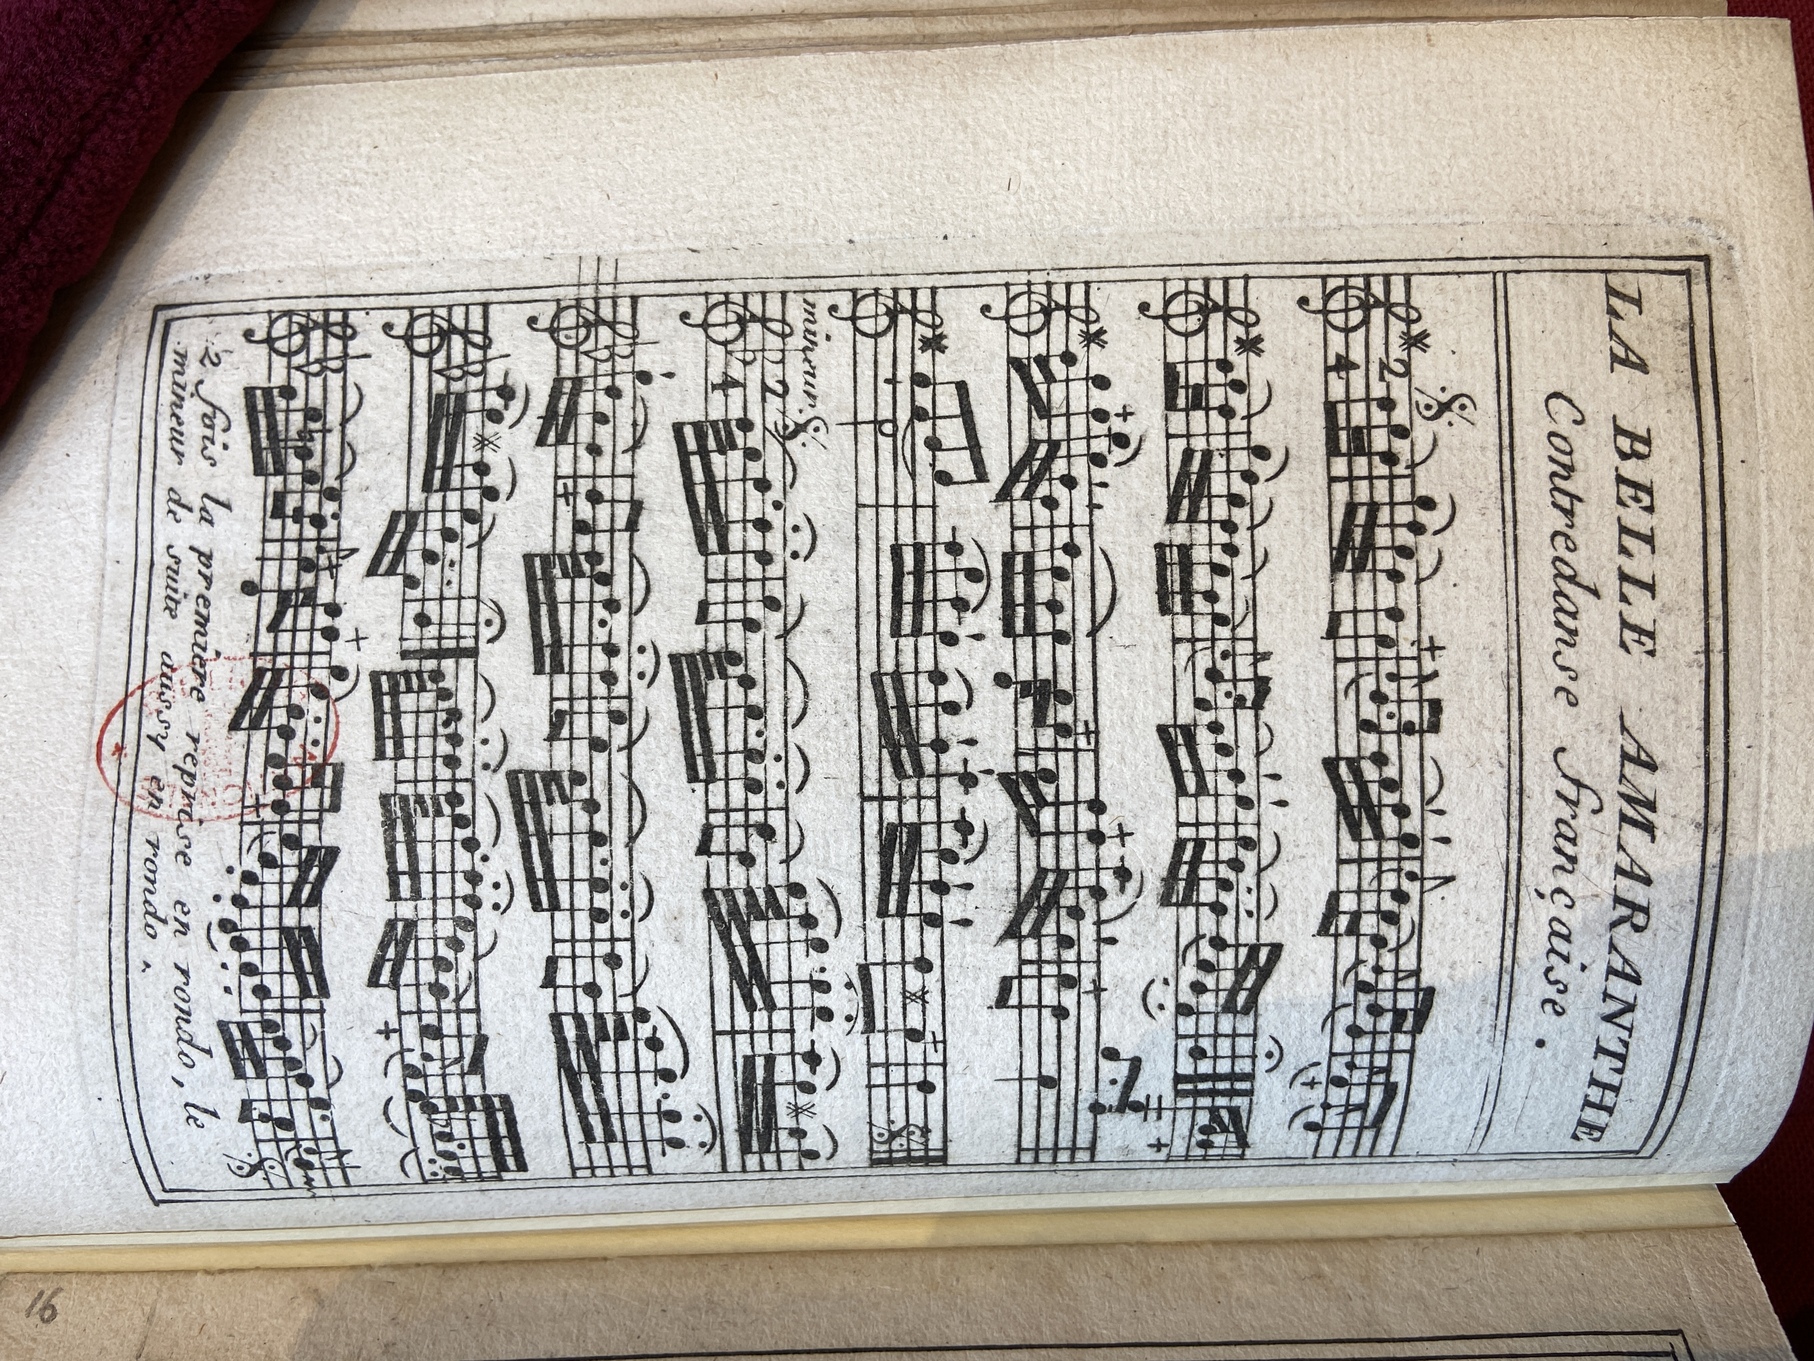 LA BELLE AMARANTHE
Contredanse française.
2
4
mineur.
2
4
2 fois la premiere reprise en rondo, le
mineur de suite aussy en rondo.
16